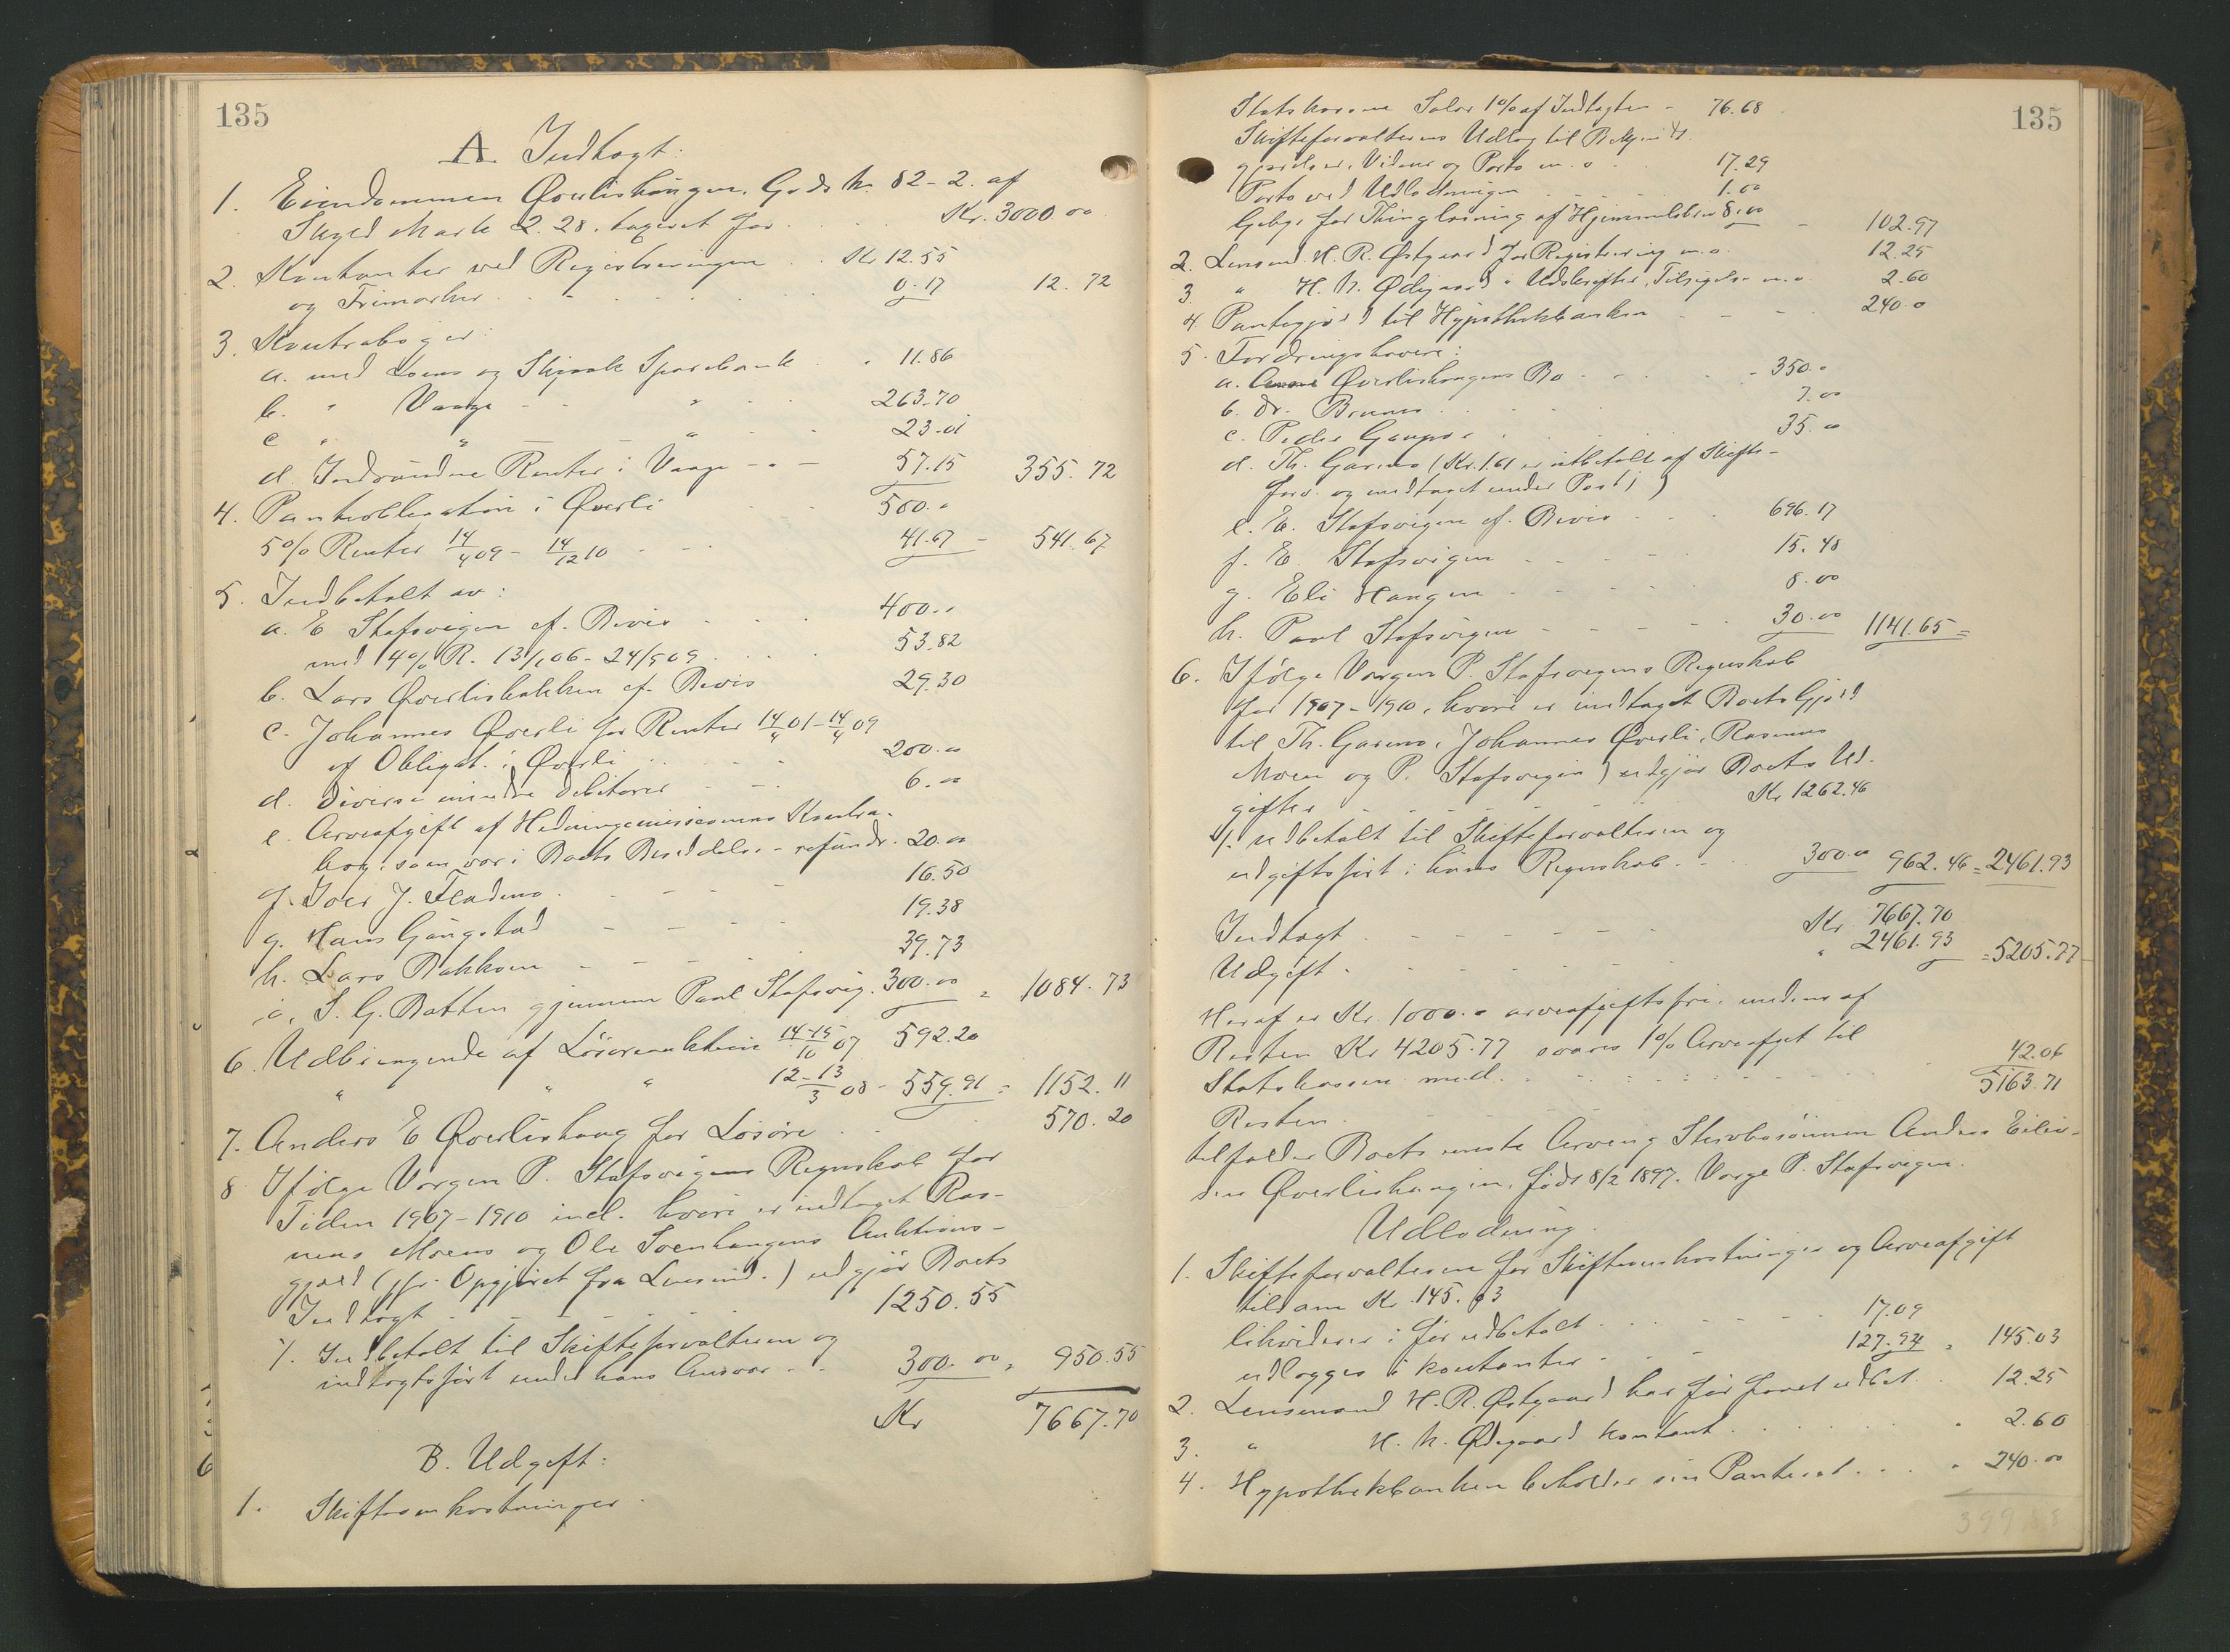 135
A. Indtægt:
1. Eiendommen Øverlishaugen, Gads Nr. 82-2 af
Skyld Mark 2.28, taxeret for . . Kr. 3000.00
2. Kontanter ved Registreringen . . Kr 12.55
og Frimærker . . . . 0.17 12.72
3. Kontrabøger:
a. med Loms og Skjaak Sparebank . . 11.86
b. " Vaage - - " - - 263.70
c " " - - " - - 23.01
d. Indvundne Renter i Vaage - " - 57.15 355.72
4. Panteobligation i Øverli - - 500.00
5% Renter 14/4 09 - 14/12 10 - - - 41.67 - 541.67
5. Indbetalt av:
a. E Stafsvigen ef. Bevis - - - 400.00
med 4% R. 13/1 06 - 24/5 09 . . . . 53.82
b. Lars Øverlisbakken ef. Bevis 29.30
c. Johannes Øverli for Renter 14/4 01 - 14/4 09
af Obligat. i Øverli . . - - - 200.00
d. Diverse mindre Debitorer - - - 6.00
e. Arveafgift af Hedningemissionens Kontra-
bog, som var i Boets Besiddelse - refunder. 20.00
f. Iver J. Fladmo . - - - 16.50
g. Hans Gaugstad - - - - 19.38
h. Lars Bakkom - - - - 39.73
i. S. G. Batten gjennem Paul Stafsvig. 300.00 = 1084.73
6. Udbringende af Løsøreauktion 14-15/10 07 592.20
" " " 12-13/3 08 - 559.91 = 1152.11
7. Anders E Øverlishaug for Løsøre . . . 570.20
8 Ifølge Vergen P. Stafsvigens Regnskab for
Tiden 1907-1910 incl. hvori er indtaget Ras-
mus Moens og Ole Svenhaugens Auktions-
gjæld (jfr. Opgjøret fra Lensmd.) udgjør Boets
Indtægt - - - - - - 1250.55
÷ Indbetalt til Skifteforvalteren og
indtægtsført under hans Ansvar - - 300.00 = 950.55
Kr 7667.70
B. Udgift:
1. Skifteomkostninger.
135
Statskassens Salær 1% af Indtægten - 76.68
Skifteforvalterens Udlæg til Bekjendt-
gjørelser, Vidner og Porto m. v . . 17.29
Porto ved Udlodningen - - - 1.00
Gebyr for Thinglæsning af Hjemmelsbrev 8.00 - 102.97
2. Lensmd. H. R. Østgaard for Registrering m.v. 12.25
3. " H. N. Ødegaard " Udskrifter, Tilsigelse m.v 2.60
4. Pantegjæld til Hypothekbanken - - - 240.00
5. Fordringshavere:
a. Øverlishaugens Bo - - - - 350.00
b. Dr. Bruun . . . . . 7.00
c. Peder Gaupar . . . . 35.00
d. Th. Garmo (Kr. 1.61 er utbetalt af Skifte-
forv. og medtaget under Post 1)
e. E. Stafsvigen ef. Bevis - - - 696.17
f. E. Stafsvigen - - - - 15.48
g. Eli Haugen - - - - 8.00
h. Paul Stafsvigen - - - - - 30.00 1141.65 =
6. Ifølge Vergen P. Stafsvigens Regnskab
for 1907-1910, hvori er indtaget Boets Gjæld
til Th. Garmo, Johannes Øverli, Rasmus
Moen og P. Stafsvigen) udgjør Boets Ud-
gifter - - - - - - Kr 1262.46
÷ udbetalt til Skifteforvalteren og
udgiftsført i hans Regnskab . - . 300.00 962.46 = 2461.93
Indtægt . - - - - - Kr 7667.70
Udgift . - - - - - " 2461.93 = 5205.77
Heraf er Kr. 1000.00 arveafgiftsfri, medens af
Resten Kr 4205.77 svares 1% Arveafgt til
Statskassen med . - - - - - 42.06
Resten . - - - - - 5163.71
tilfalder Boets eneste Arving Stervbosønnen Anders Eiliv-
sen Øverlishaugen, født 8/2 1897. Verge P. Stafsvigen.
Udlodning.
1. Skifteforvalteren for Skifteomkostninger og Arveafgift
tilsam Kr. 145.03
likvideres i før udbetalt . . . - - 17.09
udlægges i kontanter - - - 127.94 = 145.03
2. Lensmand H. R. Østgaard har før faaet udbet. . 12.25
3. " H. N. Ødegaard kontant . . . . " 2.60
4. Hypothekbanken beholder sin Panteret . . . " 240.00
399.88